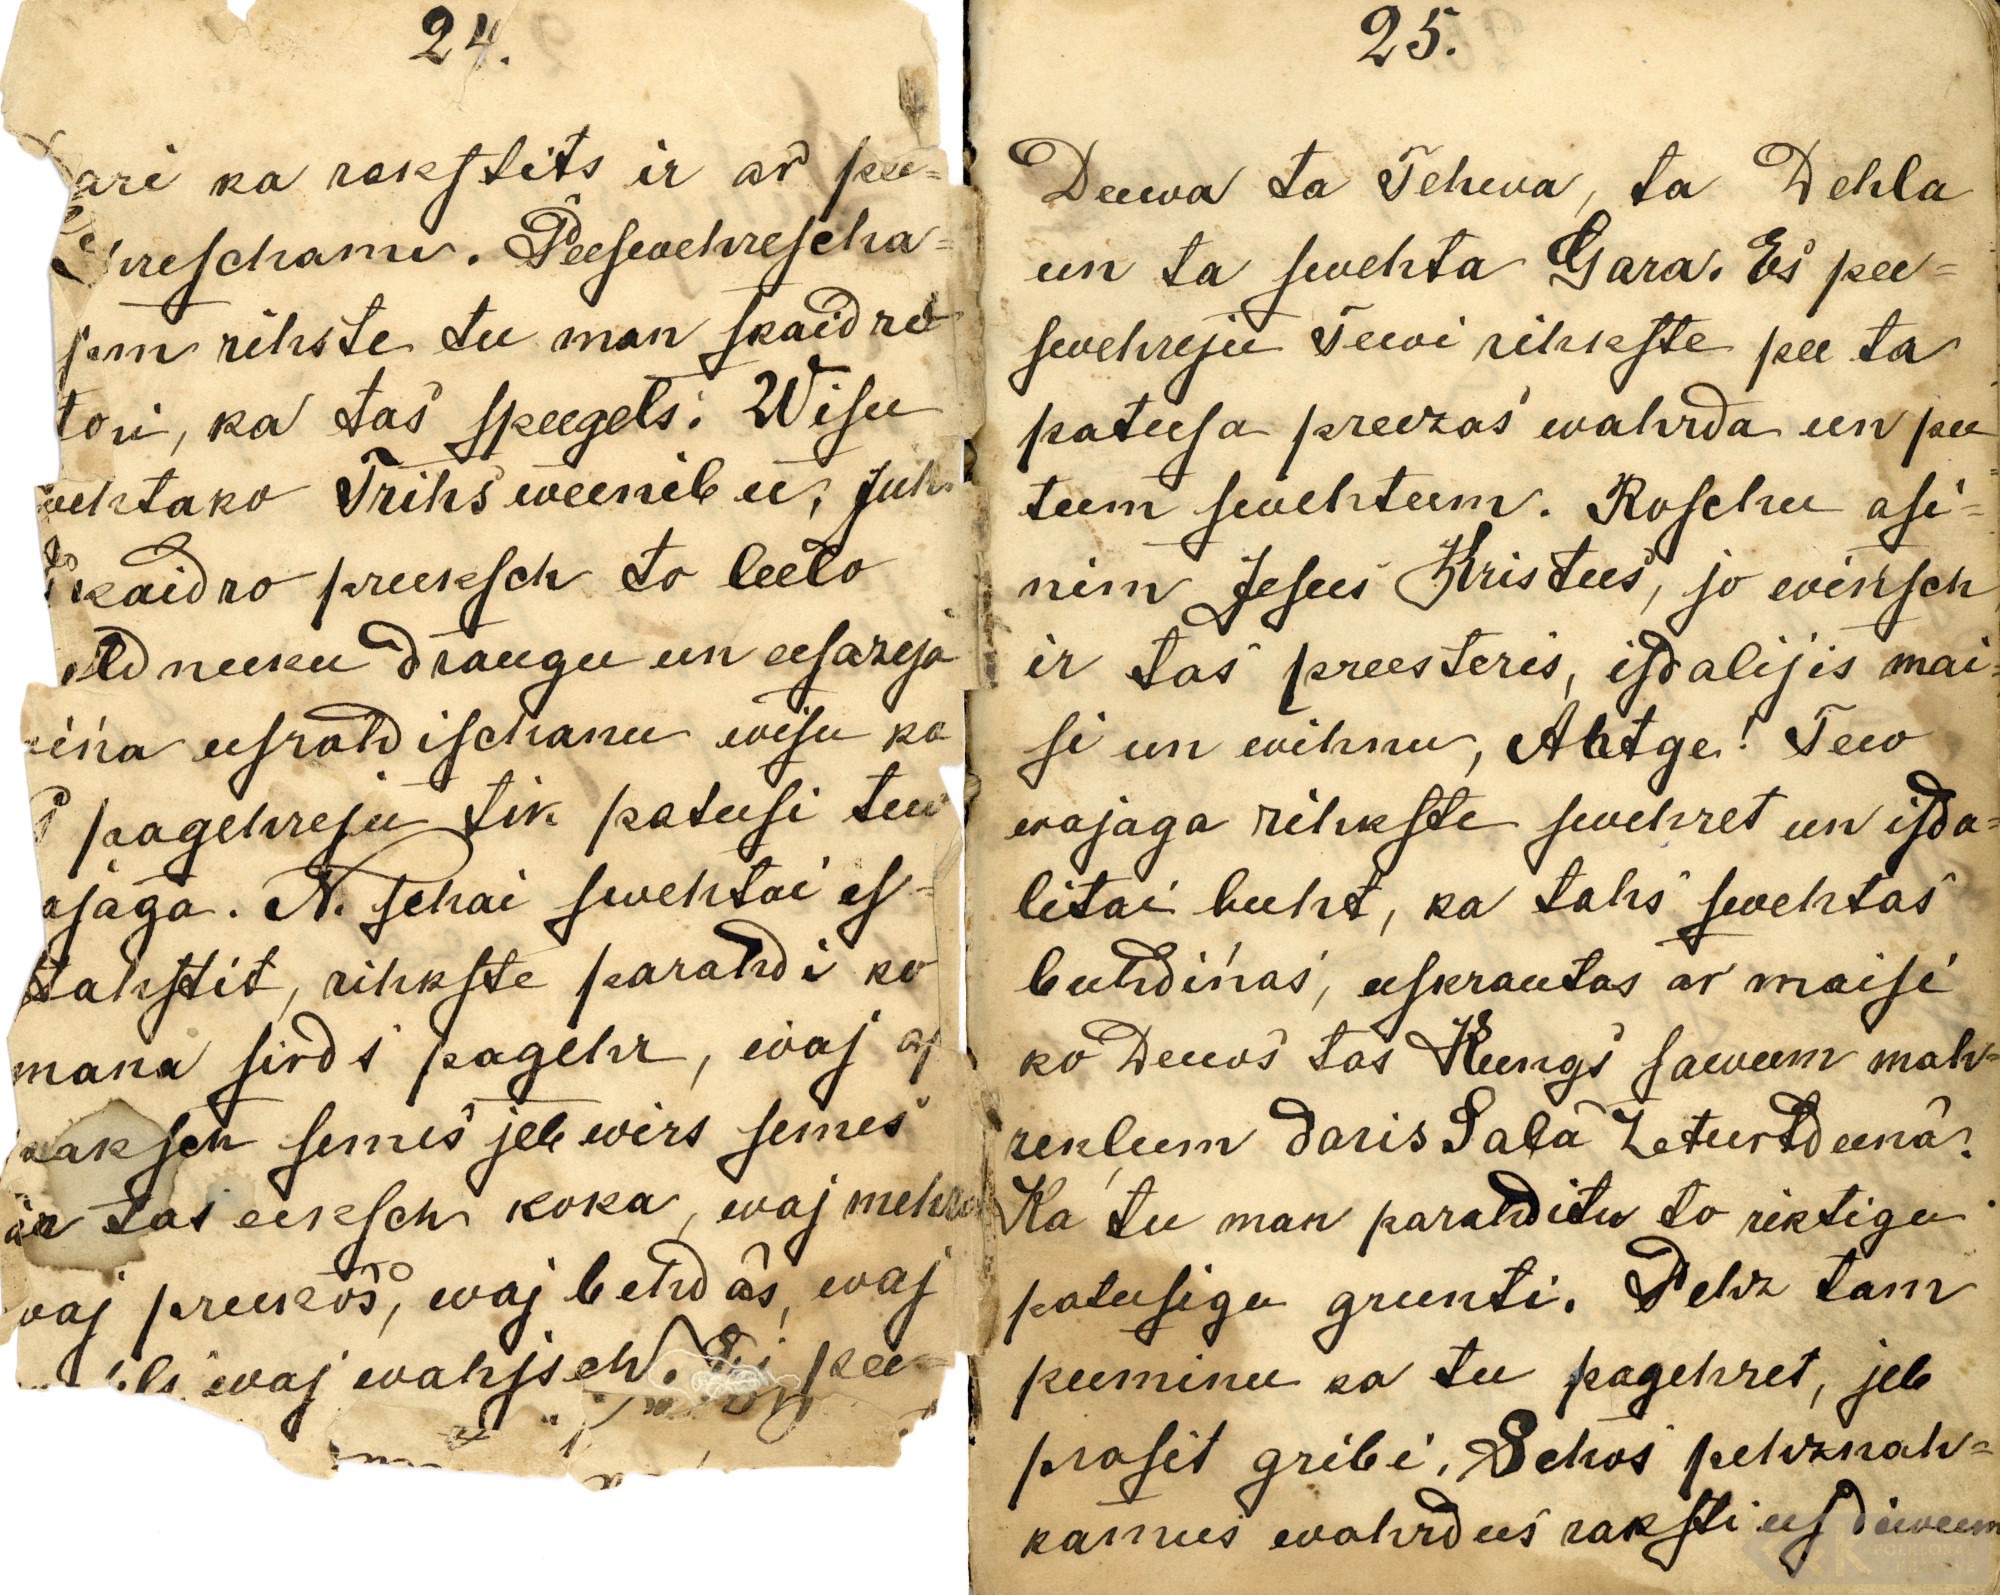 24.
dari ka rakstits ir ar pee=
hreschanu. Peeswehrescha=
jum rihste tu man skaidro
tori, ka tas speegels: Wisu
wehtako Trihs weenibu, juhs
skaidro preeksch to leelo
neeku draugu un eesazeja
eina usrahdischanu wisu ko
pagehreju tik pateesi tew
ajaga. N. schai swehtai es=
tahstit, rihkste parahdi ko
mana sirds pagehr, waj ap
waksch semes jeb wirs semes
ir tas eeksch koka, waj mehra
waj preekos, waj behdas, waj
waj wahjsch. Es pee=
25.
Deewa ta Tehwa, ta Dehla
un ta swehta Gara. Es pee=
swehreju Tewi rihkste pee ta
pateesa preezas wahrda un pee
teem swehteem. Roschu asi=
nim Jesus Kristus, jo winsch
ir tas preesteris, isdalijis mai=
si un wihnu, Ahtge! Tew
wajaga rihkste swehret un isda=
litai buht, ka tahs swehtas
buhdinas, uskrautas ar maisi
ko Deews tas Kungs saweem mahz=
rekleem daris Sala Zeturtdeena.
Ka tu man parahditu to riktigu
patusigu grunti. Pehz tam
peeminu ka tu pagehret, jeb
prasit gribi. Schos pehznah=
kamus wahrdus raksti us diweem